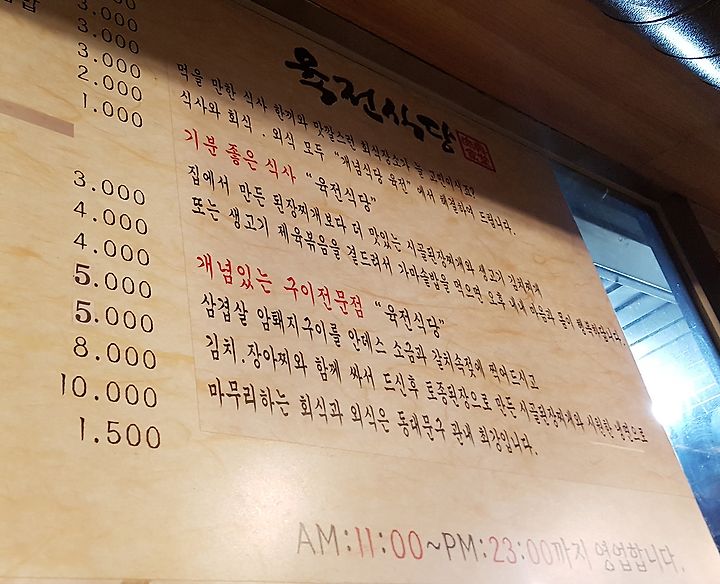 3.000
3.000
3.000
2.000
1.000
3.000
4.000
4.000
5.000
5.000
8.000
10.000
1.500
육전식당
먹을 만한 식사 한끼와 맛깔스런 회식장소가 늘 고민이시죠?
식사와 회식 . 외식 모두 "개념식당 육전"에서 해결하여 드립니다.
기분 좋은 식사 "육전식당"
집에서 만든 된장찌개보다 더 맛있는 시골된장찌개와 생고기 김치찌개
또는 생고기 제육볶음을 곁드려서 가마솥밥을 먹으면 오후 내내 마음과 몸이 행복하답니다.
개념있는 구이전문점 "육전식당"
삼겹살 암퇘지구이를 안데스 소금과 갈치속젓에 찍어드시고
김치.장아찌와 함께 싸서 드신후 토종된장으로 만든 시골된장찌개와 시원한 냉면으로
마무리하는 회식과 외식은 동대문구 관내 최강입니다.
AM:11:00~PM:23:00까지 영업합니다.